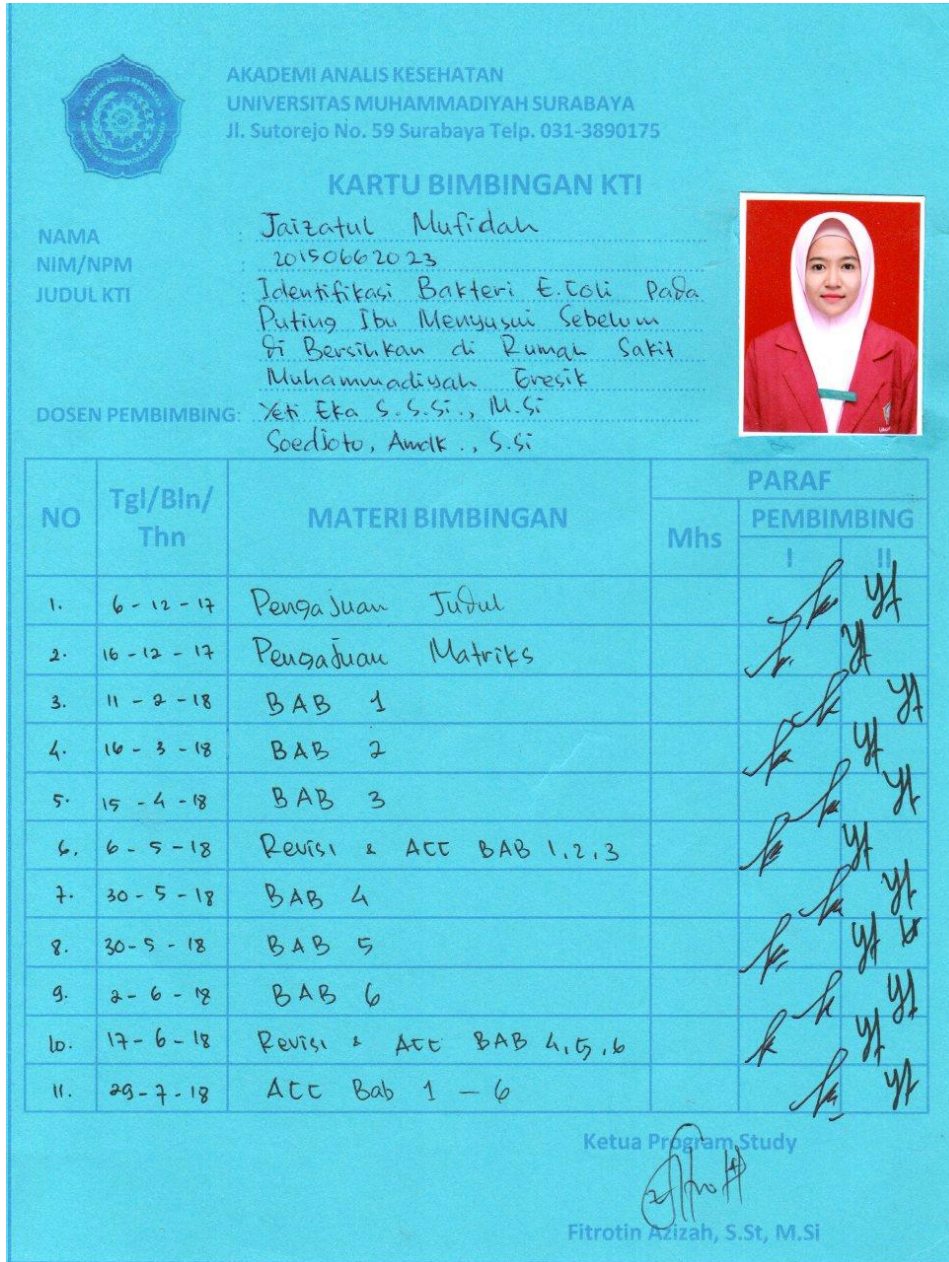 AKADEMI ANALIS KESEHATAN
UNIVERSITAS MUHAMMADIYAH SURABAYA
Jl. Sutorejo No. 59 Surabaya Telp. 031-3890175
KARTU BIMBINGAN KTI
NAMA : Jaizatul Mufidah
NIM/NPM : 20150662023
JUDUL KTI : Identifikasi Bakteri E.Coli Pada
Puting Ibu Menyusui Sebelum
di Bersihkan di Rumah Sakit
Muhammadiyah Gresik
DOSEN PEMBIMBING: Yeti Eka S. S.Si., M.Si
Soedjoto, Amdk., S.Si
NO Tgl/Bln/Thn MATERI BIMBINGAN PARAF
Mhs PEMBIMBING
I II
1. 6-12-17 Pengajuan Judul
2. 16-12-17 Pengajuan Matriks
3. 11-2-18 BAB 1
4. 16-3-18 BAB 2
5. 15-4-18 BAB 3
6. 6-5-18 Revisi & ACC BAB 1,2,3
7. 30-5-18 BAB 4
8. 30-5-18 BAB 5
9. 2-6-18 BAB 6
10. 17-6-18 Revisi & ACC BAB 4,5,6
11. 29-7-18 ACC Bab 1 - 6
Ketua Program Study
Fitrotin Azizah, S.St, M.Si